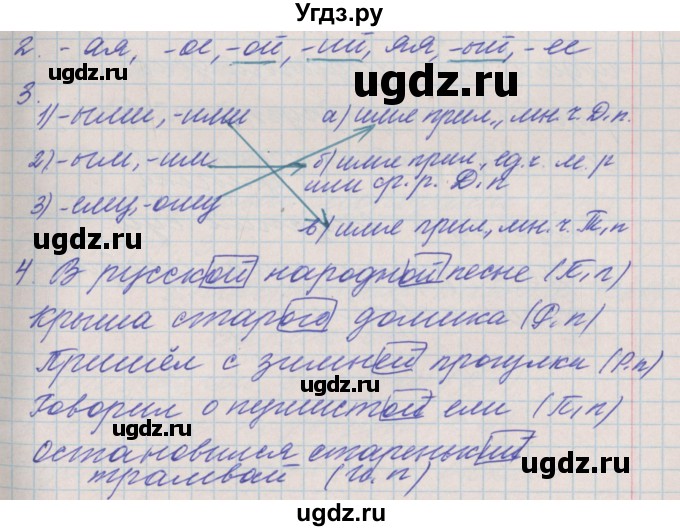 Угдз.ру
2. -ая, -ое, -ой, -ий, яя, -ый, -ее
ugdz.ru
ugdz.ru
3.
1) -ыми, -ими а) имя прил., мн.ч. Д.п.
ugdz.ru
2) -ым, -им б) имя прил., ед.ч. м.р
или ср.р. Д.п
3) -ему, -ому
ugdz.ru
ugdz.ru
в) имя прил., мн.ч. Т.п
4. В русской народной песне (П.п)
ugdz.ru
Крыша старого домика (Р.п)
ugdz.ru
Пришёл с зимней прогулки (Р.п)
ugdz.ru
Говорил о пушистой ели (П.п)
ugdz.ru
Остановился старенький
ugdz.ru
трамвай (И.п)